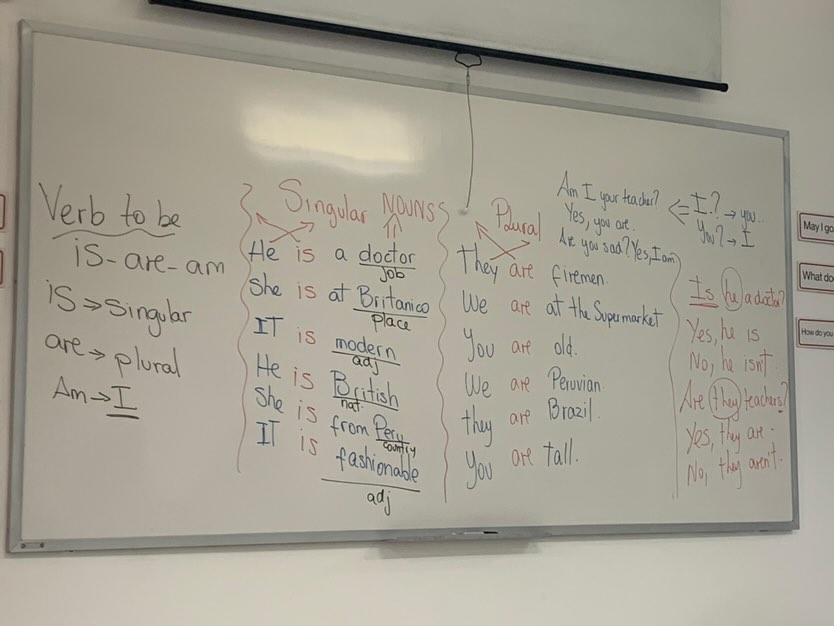 Verb to be
is - are - am
is → singular
are → plural
Am → I
Singular NOUNS
He is a doctor
job
She is at Britanico
place
IT is modern
adj
He is British
nat.
She is from Peru
country
IT is fashionable
adj
Plural
they are firemen.
We are at the Supermarket
You are old.
We are Peruvian.
they are Brazil.
You are tall.
Am I your teacher?
Yes, you are.
Are you sad? Yes, I am
⇐ I? → you...
You? → I
Is he a doctor?
Yes, he is
No, he isn't.
Are they teachers?
Yes, they are.
No, they aren't.
May I go
What do
How do you